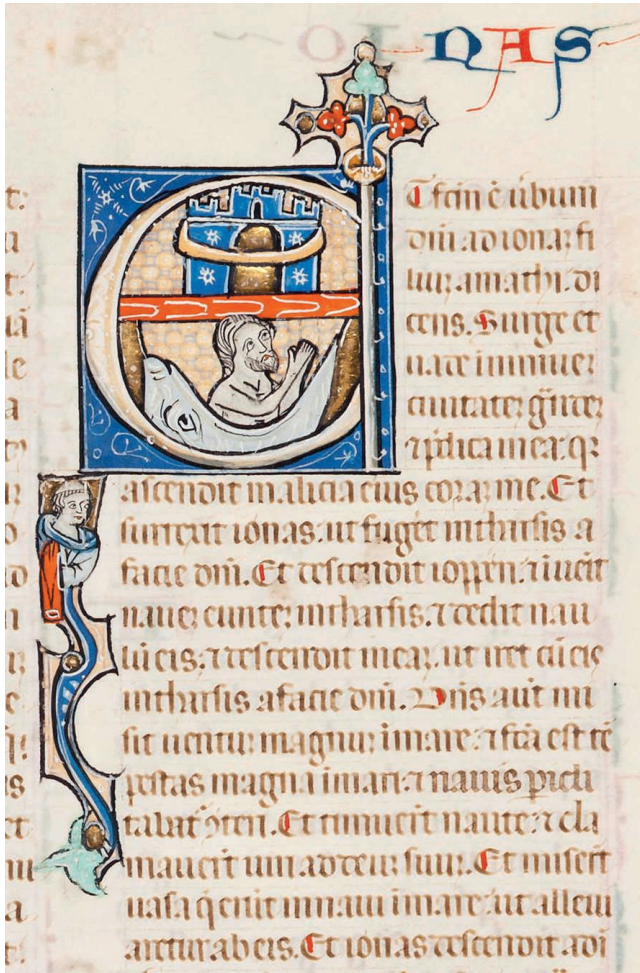 NAS
T fcm ē ūbum
dñi ad ionaz fi
lium amathi di
cens. Surge et
uade in niniuen
ciuitatez gñdez
⁊ p̄dica in ea: qz
ascendit malicia eius coraz me. Et
surrexit ionas. ut fuget in tharsis a
facie dñi. Et descendit ioppen. ⁊ iueit
nauez euntez in tharsis. ⁊ dedit nau
lū eis. ⁊ descendit in eaz. ut iret cū eis
in tharsis a facie dñi. Dñs aut̄ mi
sit uentuz magnuz ī mare: ⁊ fc̄a est tē
pestas magna ī mari: ⁊ nauis picli
tabat᷑ ꝯteri. Et timuer̄t naute: ⁊ cla
mauer̄t uiri ad deuz suuz. Et miser̄t
uasa q̄ erāt in naui ī mare: ut alleui
aretur ab eis. Et ionas descendit ad ī